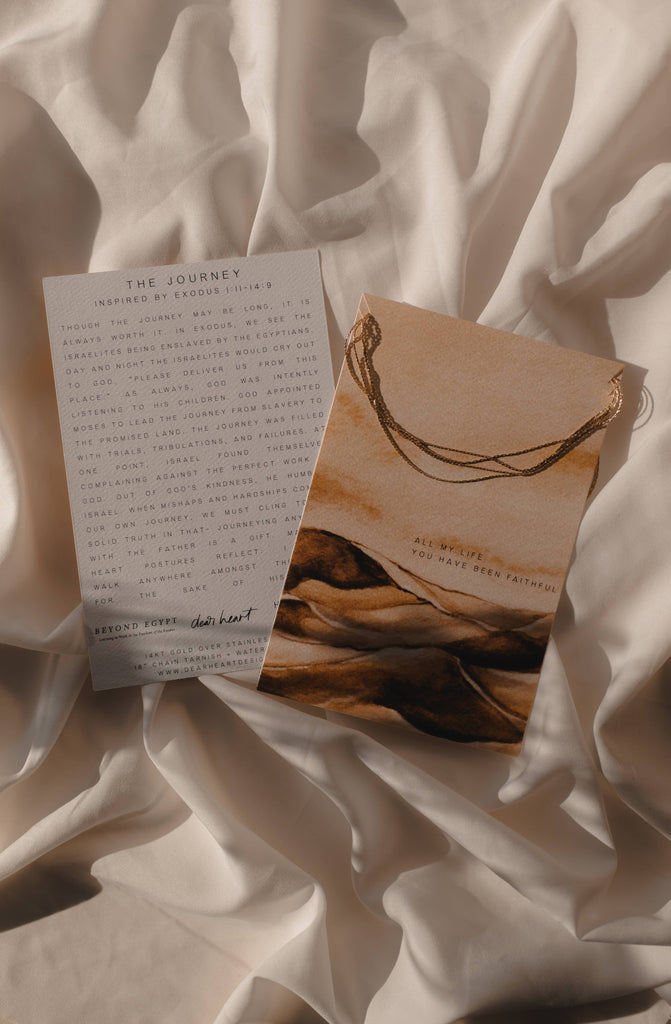 THE JOURNEY
INSPIRED BY EXODUS 1:11-14:9
THOUGH THE JOURNEY MAY BE LONG, IT IS
ALWAYS WORTH IT. IN EXODUS, WE SEE THE
ISRAELITES BEING ENSLAVED BY THE EGYPTIANS.
DAY AND NIGHT THE ISRAELITES WOULD CRY OUT
TO GOD, "PLEASE DELIVER US FROM THIS
PLACE." AS ALWAYS, GOD WAS INTENTLY
LISTENING TO HIS CHILDREN. GOD APPOINTED
MOSES TO LEAD THE JOURNEY FROM SLAVERY TO
THE PROMISED LAND. THE JOURNEY WAS FILLED
WITH TRIALS, TRIBULATIONS, AND FAILURES. AT
ONE POINT, ISRAEL FOUND THEMSELVES
COMPLAINING AGAINST THE PERFECT WORK
GOD. OUT OF GOD'S KINDNESS, HE HUMB
ISRAEL. WHEN MISHAPS AND HARDSHIPS COM
OUR OWN JOURNEY, WE MUST CLING TO
SOLID TRUTH IN THAT- JOURNEYING ANY
WITH THE FATHER IS A GIFT. MA
HEART POSTURES REFLECT
WALK ANYWHERE AMONGST TH
FOR THE SAKE OF HIS
BEYOND EGYPT
dear heart
14KT GOLD OVER STAINLES
18" CHAIN TARNISH + WATER
WWW.DEARHEARTDESIG
ALL MY LIFE
YOU HAVE BEEN FAITHFUL